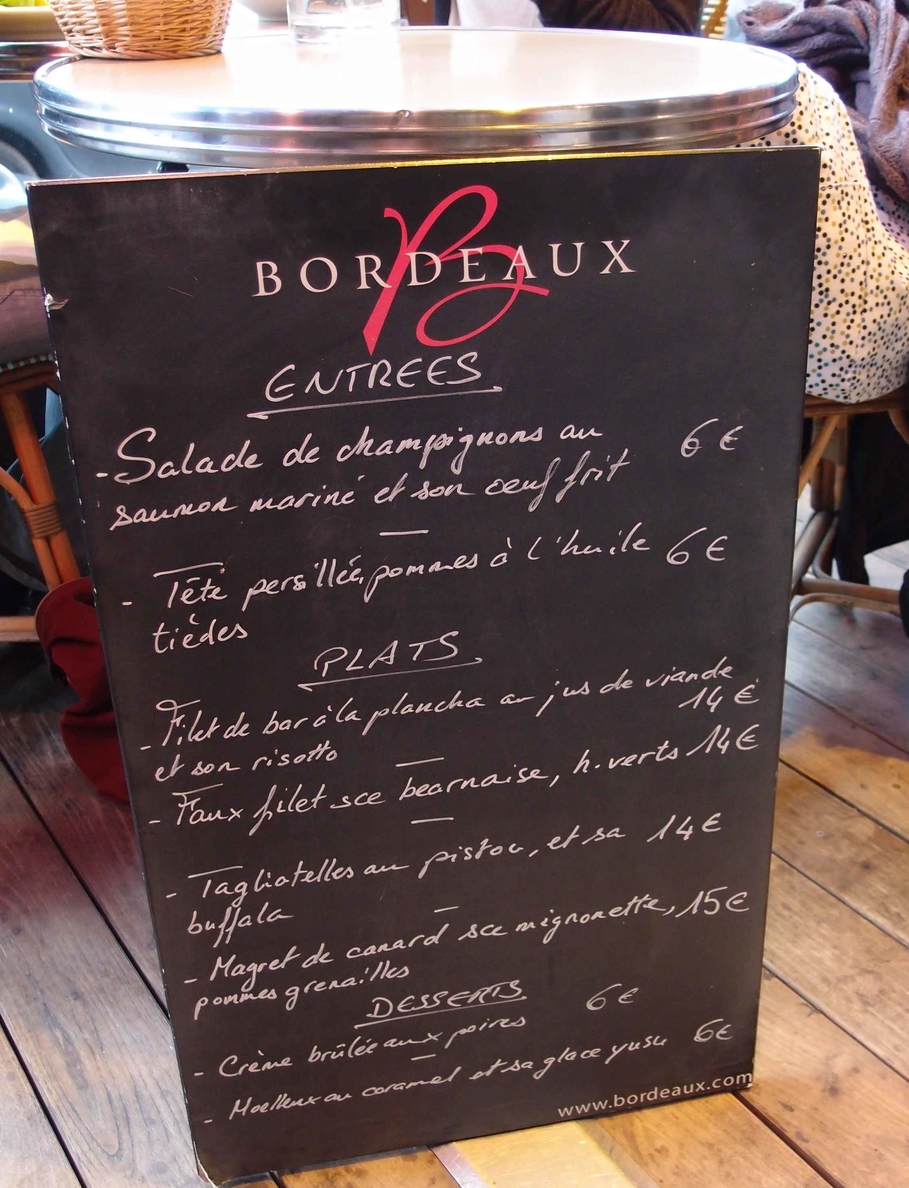 BORDEAUX
ENTREES
- Salade de champignons au 6 €
saumon mariné et son oeuf frit
- Tête persillée, pommes à l'huile 6 €
tièdes
PLATS
- Filet de bar à la plancha au jus de viande
14 €
et son risotto
- Faux filet sce bearnaise, h. verts 14 €
- Tagliatelles au pistou, et sa 14 €
buffala
- Magret de canard sce mignonette, 15 €
pommes grenailles
DESSERTS
- Crème brûlée aux poires 6 €
- Moelleux au caramel et sa glace yusu 6 €
www.bordeaux.com